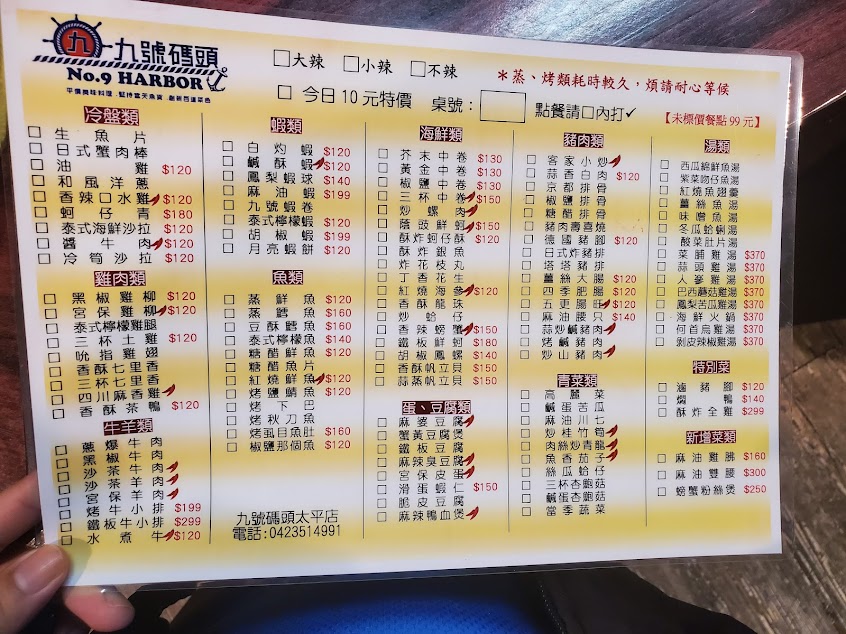 九
九號碼頭
No.9 HARBOR
平價美味料理．堅持當天魚貨．創新百道菜色
□大辣 □小辣 □不辣
＊蒸、烤類耗時較久，煩請耐心等候
□ 今日10元特價 桌號： 點餐請□內打✓
【未標價餐點 99 元】
冷盤類
□ 生魚片
□ 日式蟹肉棒
□ 油雞 $120
□ 和風洋蔥
□ 香辣口水雞 $120
□ 蚵仔青 $180
□ 泰式海鮮沙拉 $120
□ 醬牛肉 $120
□ 冷筍沙拉 $120
雞肉類
□ 黑椒雞柳 $120
□ 宮保雞柳 $120
□ 泰式檸檬雞腿
□ 三杯土雞 $120
□ 吮指雞翅
□ 香酥七里香
□ 三杯七里香
□ 四川麻香雞
□ 香酥茶鴨 $120
牛羊類
□ 蔥爆牛肉
□ 黑椒牛肉
□ 沙茶牛肉
□ 沙茶羊肉
□ 宮保羊肉
□ 烤牛小排 $199
□ 鐵板牛小排 $299
□ 水煮牛 $120
蝦類
□ 白灼蝦 $120
□ 鹹酥蝦 $120
□ 鳳梨蝦球 $140
□ 麻油蝦 $199
□ 九號蝦卷
□ 泰式檸檬蝦 $120
□ 胡椒蝦 $199
□ 月亮蝦餅 $120
魚類
□ 蒸鮮魚 $120
□ 蒸鱈魚 $160
□ 豆酥鱈魚 $160
□ 泰式檸檬魚 $140
□ 糖醋鮮魚 $120
□ 糖醋魚片
□ 紅燒鮮魚 $120
□ 烤鯖魚 $120
□ 烤下巴
□ 烤秋刀魚
□ 烤虱目魚肚 $160
□ 椒鹽那個魚 $120
九號碼頭太平店
電話:0423514991
海鮮類
□ 芥末中卷 $130
□ 黃金中卷 $130
□ 椒鹽中卷 $130
□ 三杯中卷 $150
□ 炒螺肉
□ 蔭豉鮮蚵 $150
□ 酥炸蚵仔酥 $120
□ 酥炸銀魚
□ 炸花枝丸
□ 丁香花生
□ 紅燒海參 $120
□ 香酥龍珠
□ 炒蛤仔
□ 香辣螃蟹 $150
□ 鐵板鮮蚵 $180
□ 胡椒鳳螺 $140
□ 香酥帆立貝 $150
□ 蒜蒸帆立貝 $150
蛋、豆腐類
□ 麻婆豆腐
□ 蟹黃豆腐煲
□ 鐵板豆腐
□ 麻辣臭豆腐
□ 宮保皮蛋
□ 滑蛋蝦仁 $150
□ 脆皮豆腐
□ 麻辣鴨血煲
豬肉類
□ 客家小炒
□ 蒜香白肉 $120
□ 京都排骨
□ 椒鹽排骨
□ 糖醋排骨
□ 豬肉壽喜燒
□ 德國豬腳 $120
□ 日式炸豬排
□ 塔塔豬排
□ 薑絲大腸 $120
□ 四季肥腸 $120
□ 五更腸旺 $120
□ 麻油腰只 $140
□ 蒜炒鹹豬肉
□ 烤鹹豬肉
□ 炒山豬肉
青菜類
□ 高麗菜
□ 鹹蛋苦瓜
□ 麻油川七
□ 炒桂竹筍
□ 肉絲炒青龍
□ 魚香茄子
□ 絲瓜蛤仔
□ 三杯杏鮑菇
□ 鹹蛋杏鮑菇
□ 當季蔬菜
湯類
□ 西瓜綿鮮魚湯
□ 紫菜吻仔魚湯
□ 紅燒魚翅羹
□ 薑絲魚湯
□ 味噌魚湯
□ 冬瓜蛤蜊湯
□ 酸菜肚片湯
□ 菜脯雞湯 $370
□ 蒜頭雞湯 $370
□ 人蔘雞湯 $370
□ 巴西蘑菇雞湯 $370
□ 鳳梨苦瓜雞湯 $370
□ 海鮮火鍋 $370
□ 何首烏雞湯 $370
□ 剝皮辣椒雞湯 $370
特別菜
□ 滷豬腳 $120
□ 燜鴨 $140
□ 酥炸全雞 $299
新增菜類
□ 麻油雞胇 $160
□ 麻油雙腰 $300
□ 螃蟹粉絲煲 $250